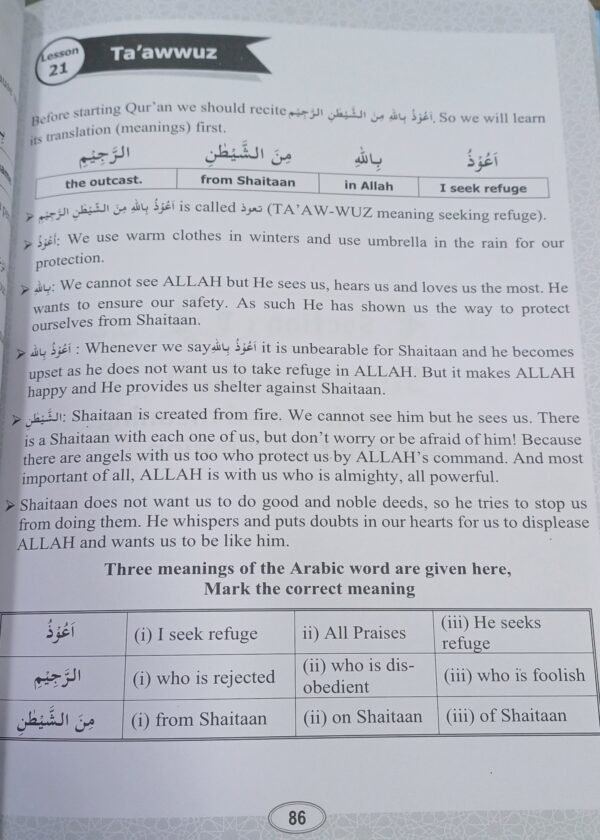 Lesson
21
Ta'awwuz
Before starting Qur'an we should recite اَعُوْذُ بِاللهِ مِنَ الشَّيْطٰنِ الرَّجِيْمِ. So we will learn
its translation (meanings) first.
اَعُوْذُ بِاللهِ مِنَ الشَّيْطٰنِ الرَّجِيْمِ
the outcast. from Shaitaan in Allah I seek refuge
➢ اَعُوْذُ بِاللهِ مِنَ الشَّيْطٰنِ الرَّجِيْمِ is called تعوذ (TA'AW-WUZ meaning seeking refuge).
➢ اَعُوْذُ: We use warm clothes in winters and use umbrella in the rain for our
protection.
➢ بِاللهِ: We cannot see ALLAH but He sees us, hears us and loves us the most. He
wants to ensure our safety. As such He has shown us the way to protect
ourselves from Shaitaan.
➢ اَعُوْذُ بِاللهِ : Whenever we say اَعُوْذُ بِاللهِ it is unbearable for Shaitaan and he becomes
upset as he does not want us to take refuge in ALLAH. But it makes ALLAH
happy and He provides us shelter against Shaitaan.
➢ الشَّيْطٰنِ: Shaitaan is created from fire. We cannot see him but he sees us. There
is a Shaitaan with each one of us, but don't worry or be afraid of him! Because
there are angels with us too who protect us by ALLAH's command. And most
important of all, ALLAH is with us who is almighty, all powerful.
➢ Shaitaan does not want us to do good and noble deeds, so he tries to stop us
from doing them. He whispers and puts doubts in our hearts for us to displease
ALLAH and wants us to be like him.
Three meanings of the Arabic word are given here,
Mark the correct meaning
اَعُوْذُ (i) I seek refuge ii) All Praises (iii) He seeks refuge
الرَّجِيْمِ (i) who is rejected (ii) who is dis-obedient (iii) who is foolish
مِنَ الشَّيْطٰنِ (i) from Shaitaan (ii) on Shaitaan (iii) of Shaitaan
86